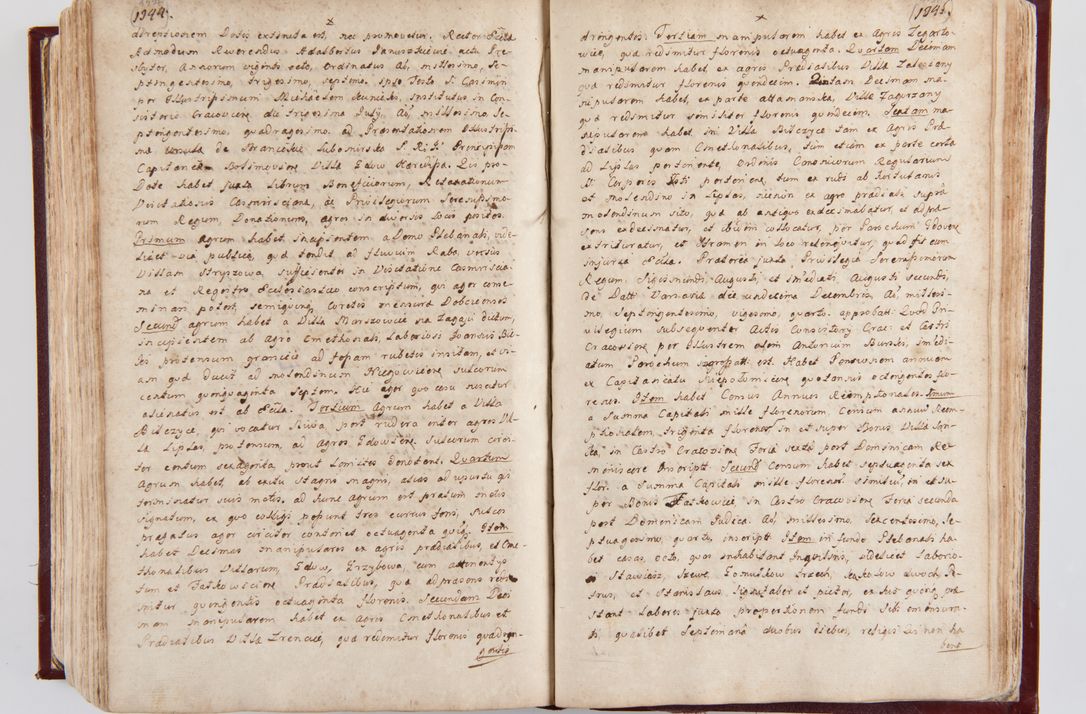 1344.
adventionem Dotis extincta est, nec promovetur. Rector Ecclae
Admodum Reverendus Adalbertus Januszkiewic actu Pre-
sbiter, Annorum viginti octo, Ordinatus Ao, millesimo, Se-
ptingentesimo, trigesimo, septimo, ipso Festo S. Casimiri
per Illustrissimum Michaelem Kunicki, Institutus in Con-
sistorio Cracoviensi die trigesima July, Ao, millesimo, Se-
ptingentesimo, quadragesimo. ad Praesentationem Illustrissi-
mae Ursula de Branickie Lubomirska S. R. I. Principissae
Capitaneae Bolimoviensis Villa Gdow Haeredissa. Qui pro-
Dote habet juxta librum Beneficiorum, Retaxationum
Visitationis Commissione, ac Privilegiorum Serenissimo-
rum Regum, Donationum, agros in diversis locis positos.
Primum agrum habet incipientem a Domo Plebanali, vide-
licet via publica, qua tendit ad fluvium Raba, versus
Villam Stryszowa, sufficienter in Visitatione Commissa-
na et Registro Ecclesiastico conscriptum, qui ager come-
minari potest semiquing coretos mensura Dobczensi.
Secund agrum habet a Villa Marszowice na Zagaju dictum,
incipientem ab Agro Cmethonali, Laboriosi Joannis Bie-
lei protensum granicie ad fossam rubetis insitam, et vi-
am qua ducit ad molendinum Niegowicense sulcorum
centum quinquaginta Septem. Hic ager quo casu
alienatus est ab Ecclia. Tertium Agrum habet a Villa
Bilczyce, qui vocatur Niwa, post rudera inter agros Vil-
la Liplas, protensum, ad agros Gdowsenses sulcorum circi-
ter centum sexaginta prout Limites denotant. Quartum
Agrum habet ab exitu stagni magni, alias ad upustu qui
terminatur suis metis. ad hunc Agrum est pratum metis
signatum, ex quo colligi possunt tres currus foeni, sulcos
praefatus ager circiter continet octuaginta quinq. Item
habet Decimas Manipulares ex agris praedialibus, et Cme-
thonalibus Villarum, Gdow, Grzybowa, cum attinentys
tum et Fałkowiciense Praedialibus, qua ad praesens redi-
mitur quingentis octuaginta florenis. Secundam Deci-
mam manipularem habet ex Agris Cmethonalibus et
Praedialibus Villa Zrencice, qua redimitur florenis quadrin-
gentis
1345.
dringentis. Tertiam manipularem habet ex Agris Zegarto-
wice, qua redimitur florenis octuaginta. Quartam Decimam
manipularem habet, ex agris Praedialibus Villa Zalesiany
qua redimitur florenis quindecim. Quintam Decimam ma-
nipularem habet, ex parte attamanska, Villa Zagorzany
qua redimitur similiter florenis quindecim. Sextam ma-
nipularem habet in Villa Bilczyce tam ex Agris Prae-
dialibus quam Cmethonalibus, tum etiam ex parte certa
ad Liplas pertinente, Ordinis Canonicorum Regularium
SS. Corporis Xsti pertinente, tum ex rubi ad Hortulanos
et molendino in Liplas, nec non ex agro praediali supra
molendinum sito, qua ab antiquo exdecimabatur, et ad prae-
sens exdecimatur, et ibidem collocatur, per Parochum Gdovien
extrituratur, et stramen in loco relinquitur, quod fit cum
injuria Eccla. Praeterea juxta Privilegia Serenissimorum
Regum. Sigismundi Augusti, et immediati, Augusti secundi,
De Datt Varsavia die undecima Decembris Ao, millesi-
mo, Septingentesimo, vigesimo, quarto. approbatt. Quod In-
vilegium subsequenter Actis Consistory Crac: et Castri
Cracoviensis per Illustrem olim Antonium Burski, imedi-
atum Parochum ingrossatt. est. Habet Pensionem annuam
ex Capitaneatu Niepołomicens. quotannis octingentos flo-
renos. Item habet Census Annuos Reemptionales. Imum
a Summa Capitali mille florenorum Censum annuum Reem-
ptionalem, triginta florenor. in et super Bonis Villa
in Castro Cracoviense Feria sexta post Dominicam Re-
miniscere Inscriptt. Secund Censum habet septuaginta sex
flor. a Summa Capitali mille florenor. similiter, in et su-
per Bonis Fałkowice, in Castro Cracoviense Feria secunda
post Dominicam Judica. Ao, millesimo, sexcentesimo, Se-
ptuagesimo, quarto, inscriptt. Item in fundo Plebanali ha-
bet casas, octo, quas inhabitant Inquilini, videlicet Laborio-
si Stawiarz, Szewc, Tomulkow trzech, Seykowow dwoch Pe-
trus, et Stanislaus et pictor, ex his quinq prae-
stant Labores juxta proportionem fundi sibi comensura-
ti, qualibet Septimana duobus diebus, reliqui qui non ha-
bent